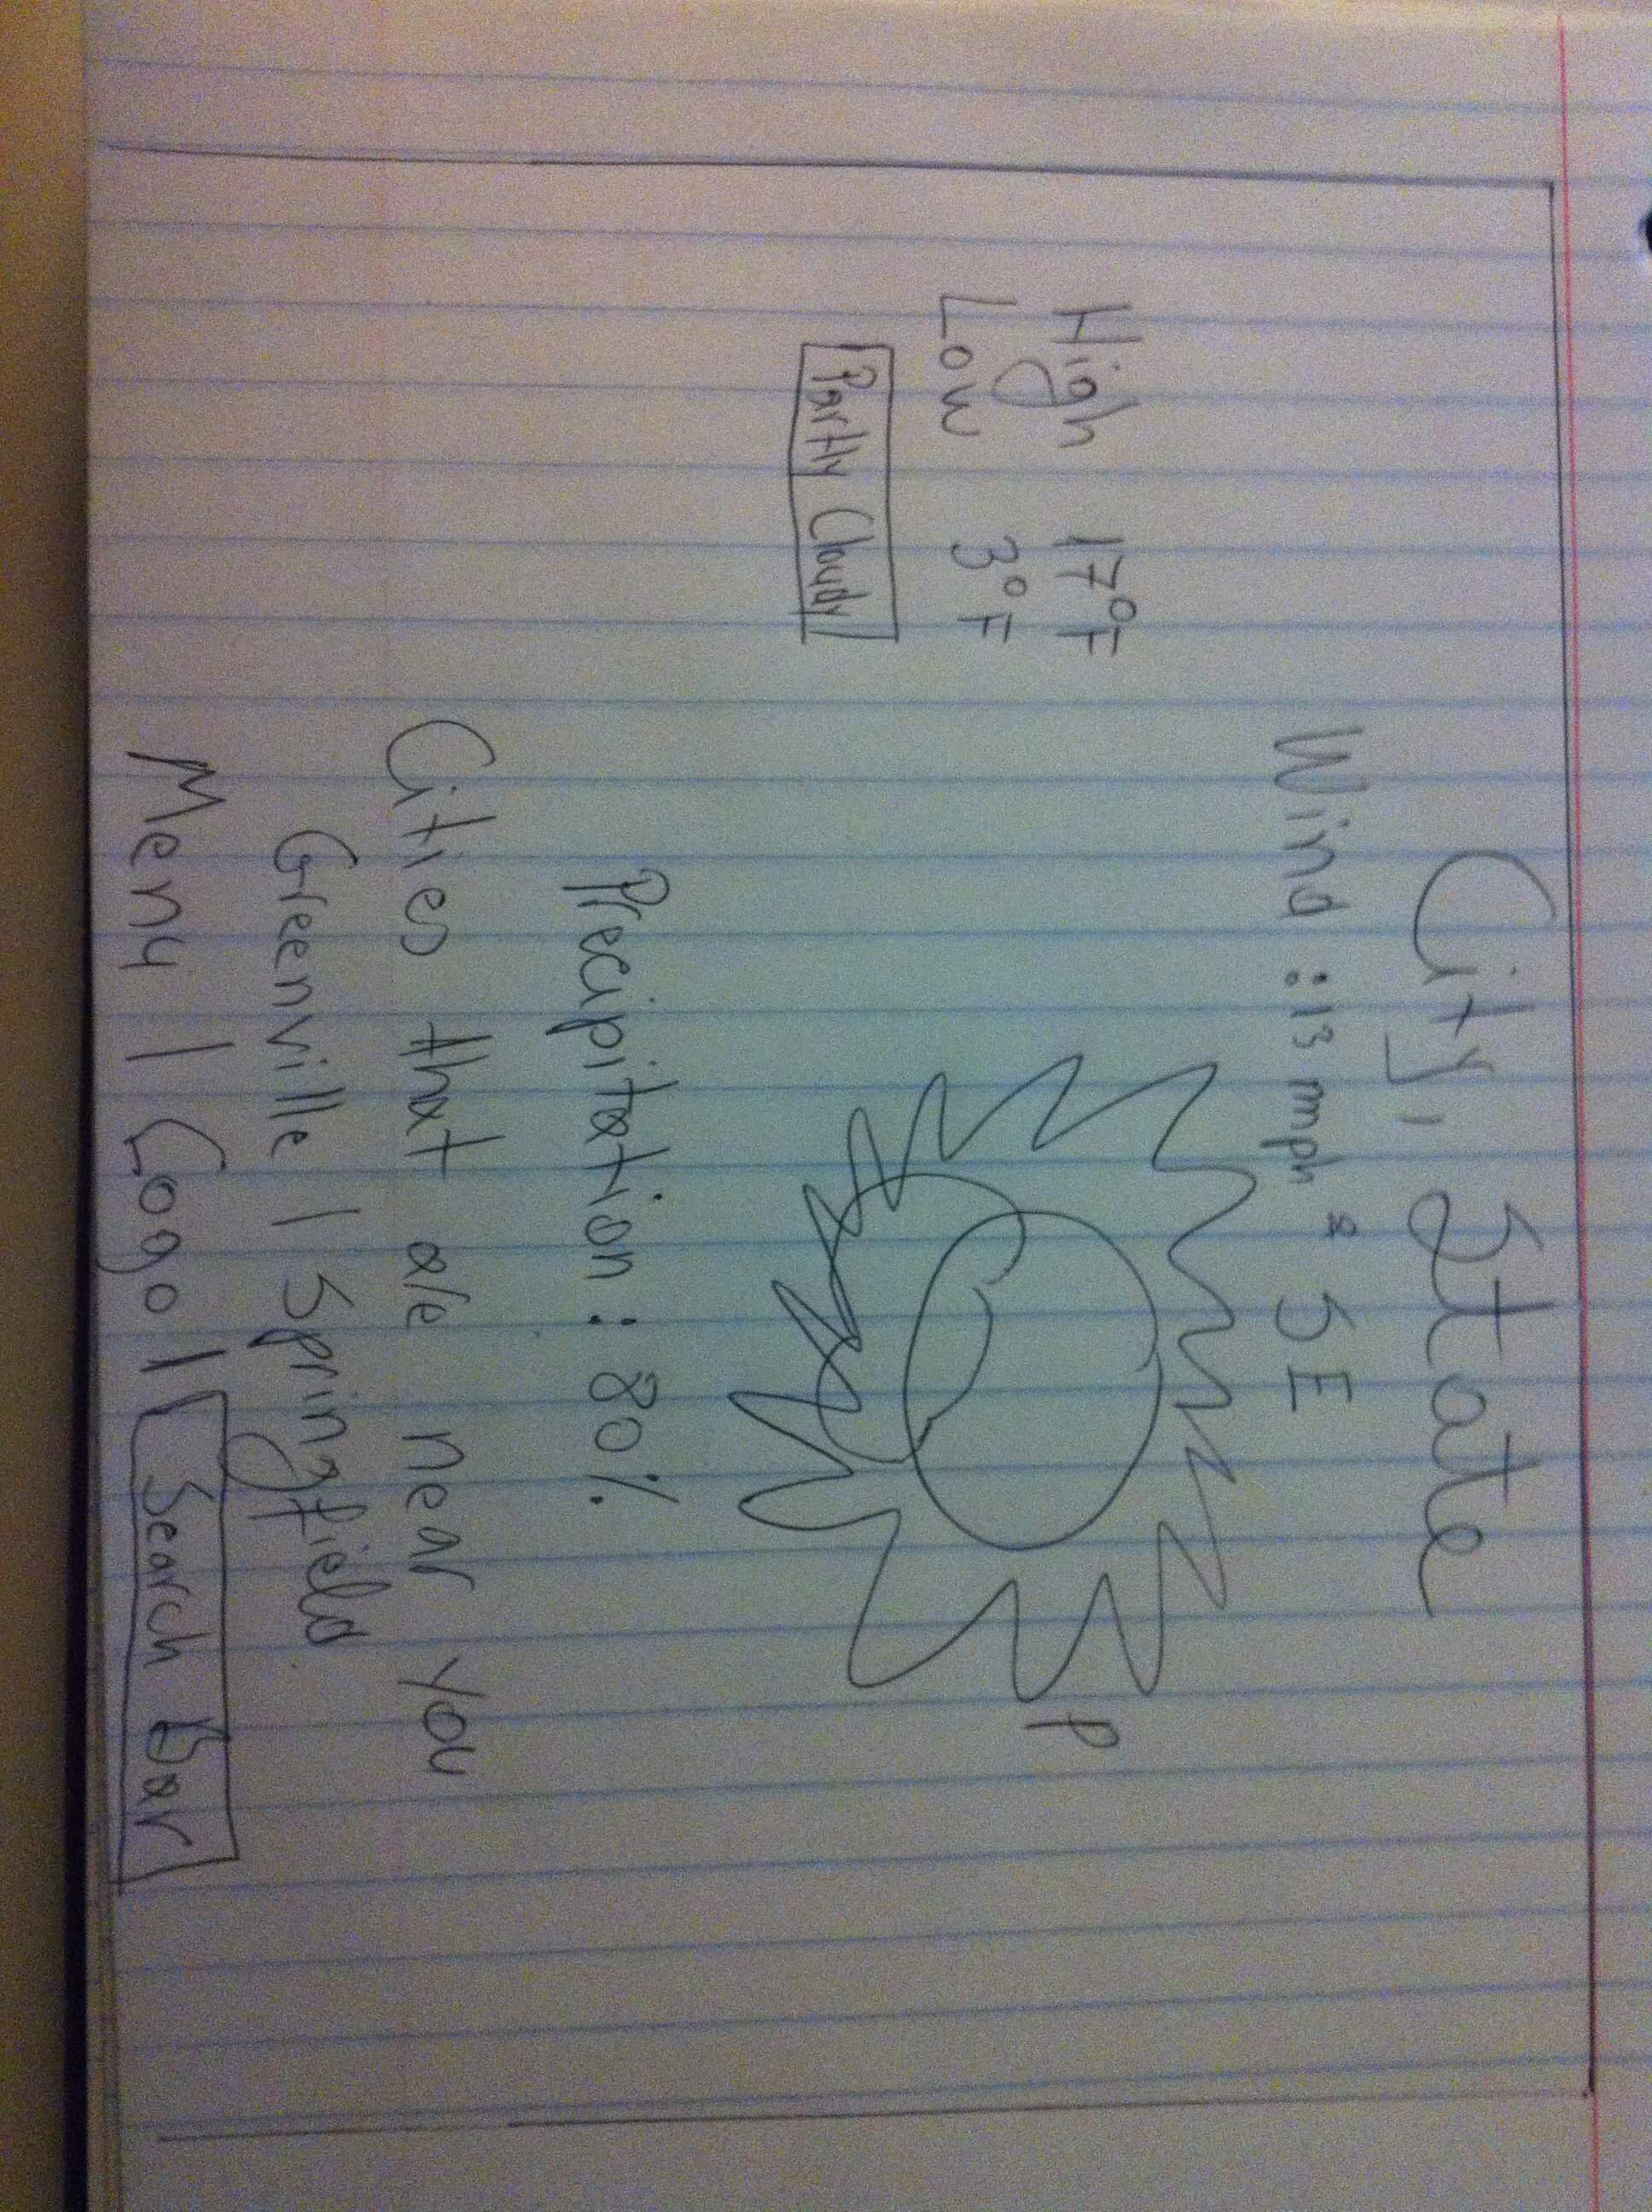 City, State
Wind : 13 mph SE
High 17°F
Low 3°F
P
Partly Cloudy
Precipitation : 80%
Cities that are near you
Greenville | Springfield
Menu | Logo | Search Bar